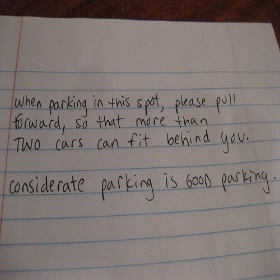 when parking in this spot, please pull
forward, so that more than
TWO cars can fit behind you.
considerate parking is GOOD parking.